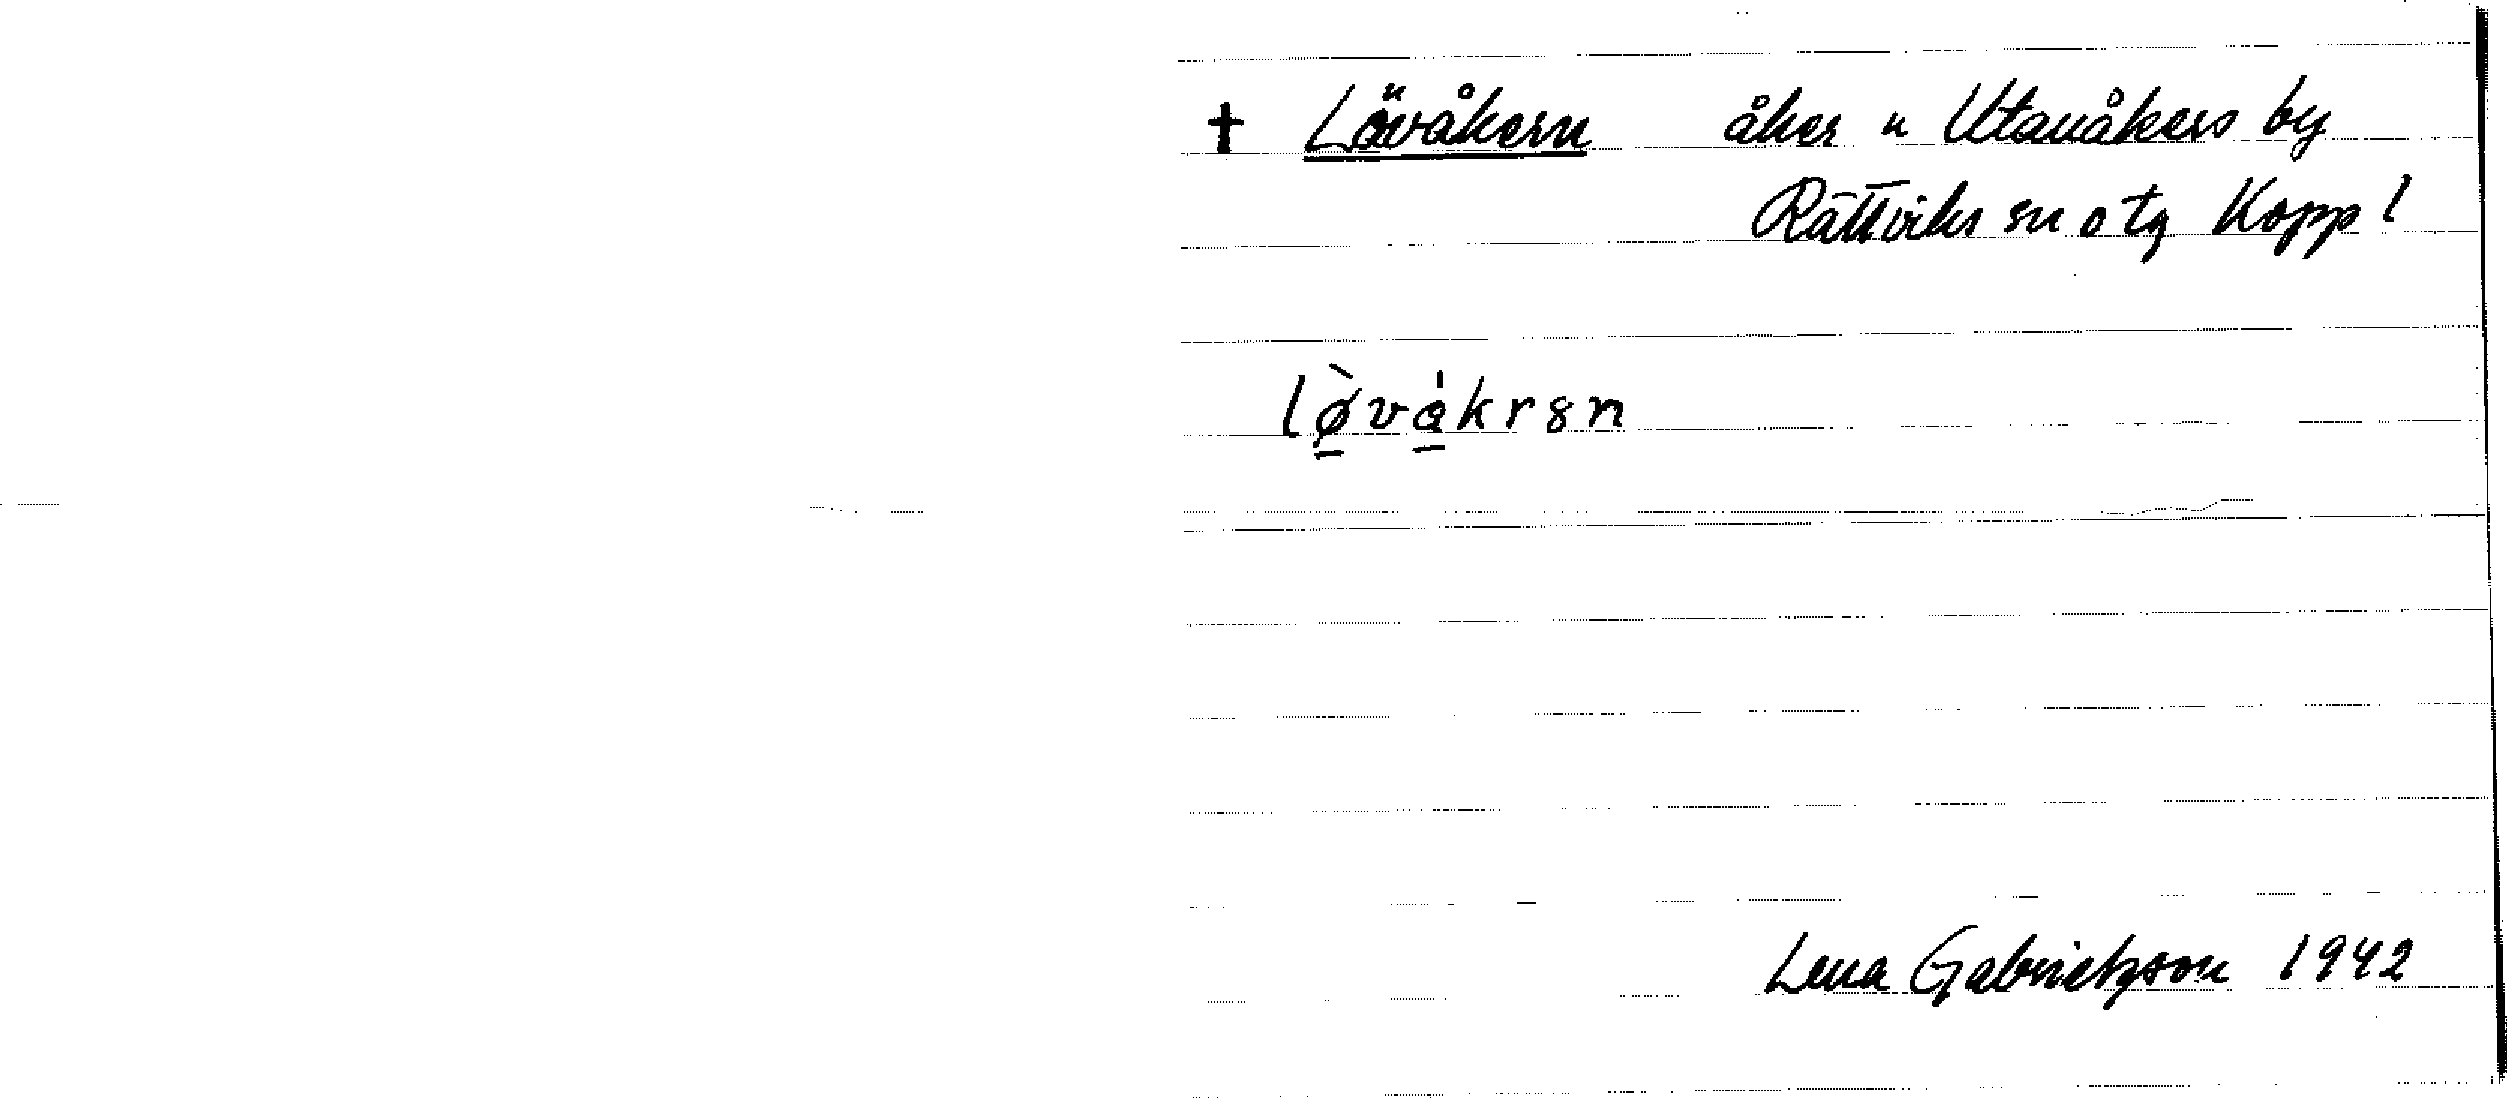 † Lövåkern åker n Utanåkers by
Rättviks sn o tg Kopp l
lø̠̀vå̠krən
Lena Gabrielsson 1942